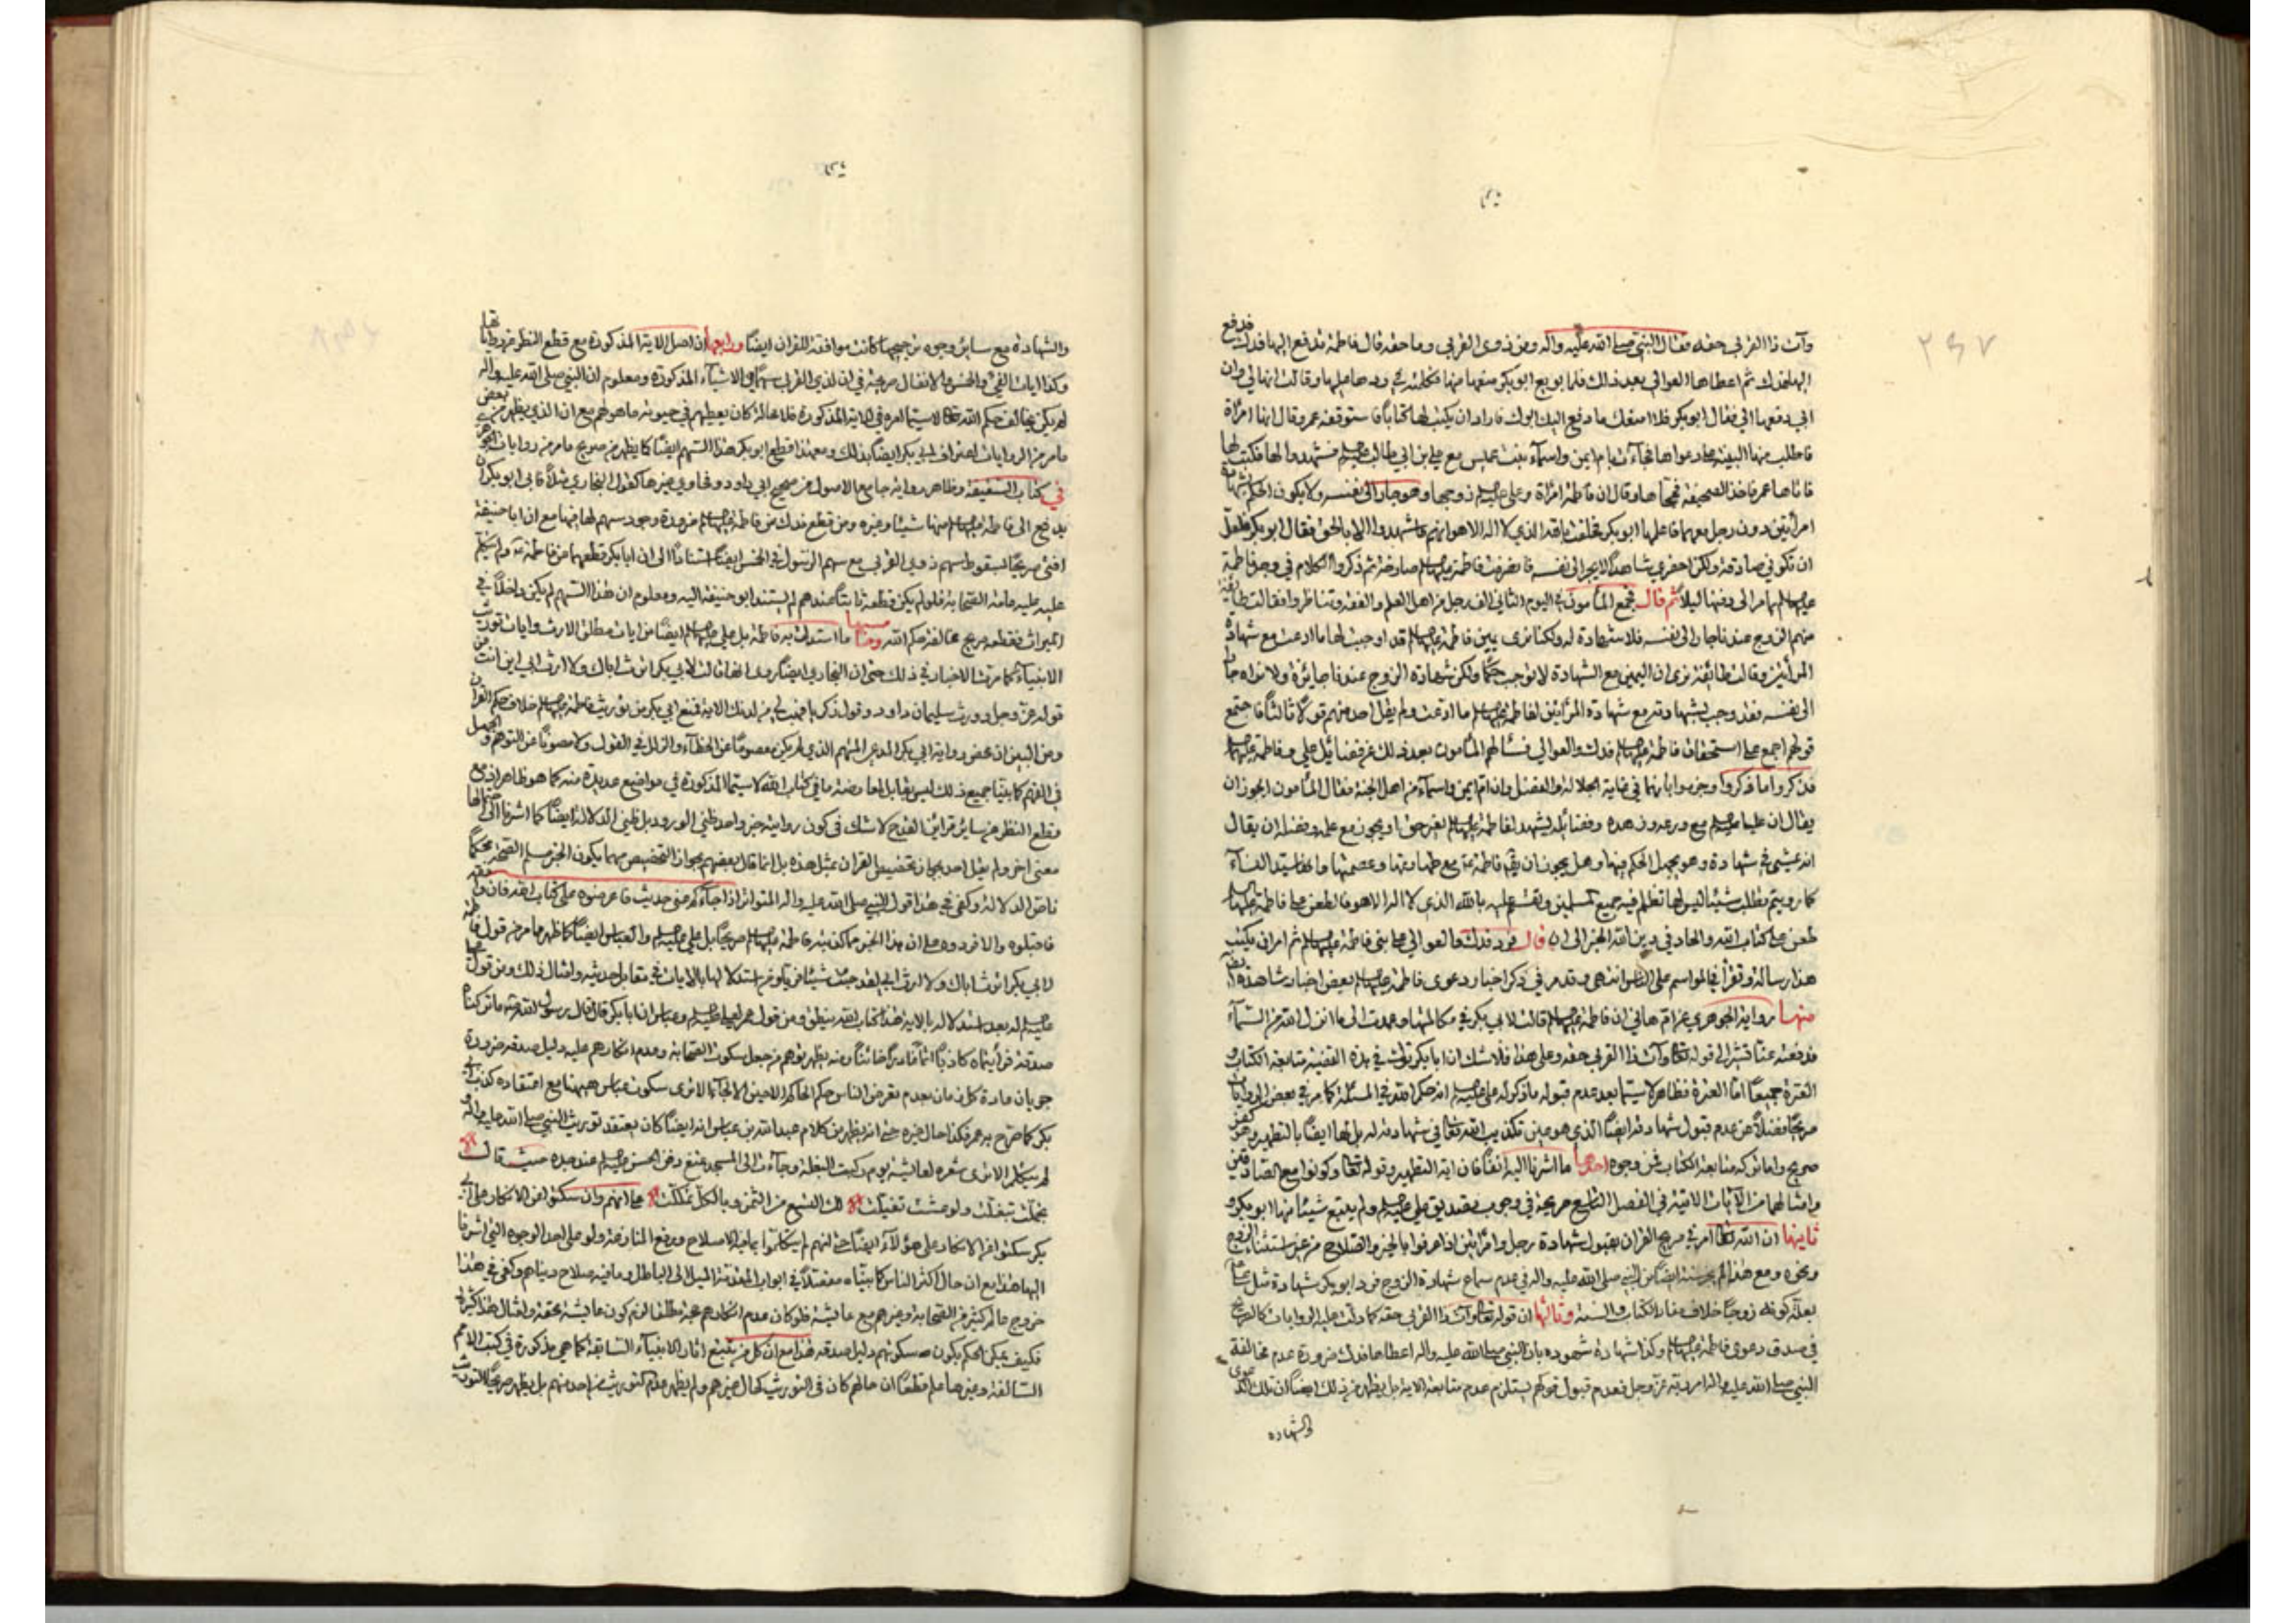 وآت ذا القربى حقه فقال النبي صلى الله عليه وآله ومن ذوى القربى وما حقه قال فاطمة تدفع اليها فدك فدفع
اليها فدك ثم اعطاها العوالى بعد ذلك فلما بويع ابو بكر منعها منها فكلمته في ردها عليها وقالت انهما لي وان
ابي دفعهما الي فقال ابو بكر فلا امنعك ما دفع اليك ابوك فاراد ان يكتب لها كتابا فاستوقفه عمر وقال انها امرأة
فاطلب منها البينة على دعواها فجاءت بام ايمن واسماء بنت عميس مع علي بن ابي طالب فشهدوا لها فكتب لها
فاتاها عمر فاخذ الصحيفة فمحاها وقال ان فاطمة امرأة وعلي زوجها وهو جار الى نفسه ولا يكون الحكم بشهادة
امرأتين دون رجل معهما فاعلمها ابو بكر فحلفت بالله الذي لا اله الا هو انهم ما شهدوا الا بالحق فقال ابو بكر فلعل
ان تكوني صادقة ولكن احضري شاهدا لا يجر الى نفسه فانصرفت فاطمة صارخة ثم ذكروا الكلام في وجد فاطمة
عليهما الى دفنها ليلا ثم قال فجمع المأمون في اليوم الثاني الف رجل من اهل العلم والفقه وتناظروا فقالت طائفة
منهم الزوج عندنا جار الى نفسه فلا شهادة له ولكنا نرى يمين فاطمة قد اوجب لها ما ادعت مع شهادة
المرأتين وقالت طائفة نرى ان اليمين مع الشهادة لا توجب حكما ولكن شهادة الزوج عندنا جايزة ولا نراه جارا
الى نفسه فقد وجب بشهادته مع شهادة المرأتين لفاطمة ما ادعت ولم يقل احد منهم قولا ثالثا فاجتمع
قولهم اجمع على استحقاق فاطمة فدك والعوالي فسألهم المأمون بعد ذلك عن فضائل علي وفاطمة
فذكروا ما ذكروا وجزموا بأنهما في غاية الجلالة والفضل وان ام ايمن واسماء من اهل الجنة فقال المأمون ايجوز ان
يقال ان عليا مع ورعه وزهده وفضائله يشهد لفاطمة بغير حق او يجوز مع علمه وفضله ان يقال
انه يمشي في شهادة وهو يجهل الحكم فيها وهل يجوز ان يقال فاطمة مع طهارتها وعصمتها وانها سيدة النساء
كما رويتم تطلب شيئا ليس لها تظلم فيه جميع المسلمين وتقسم عليه بالله الذي لا اله الا هو فالطعن على فاطمة
طعن على كتاب الله والحاد في دين الله الخبر الى ان قال فرد فدك والعوالي على بني فاطمة ثم امر ان يكتب
هذا رسالة وتقرأ في المواسم على الناس انتهى وقد مر في ذكر اخبار دعوى فاطمة بعض اخبار شاهدة ايضا
منها رواية الجوهري عن ام هاني ان فاطمة قالت لابي بكر في مكالمتها وعمدت الى ما انزل الله من السماء
فدفعته عنا تشير الى قوله تعالى وآت ذا القربى حقه وعلى هذا فلا شك ان ابا بكر ترك في هذه القضية متابعة الكتاب و
العترة جميعا اما العترة فظاهر لا سيما بعد عدم قبوله ما ذكره له علي انه حكم الله في المسئلة كما مر في بعض الروايات
صريحا فضلا عن عدم قبول شهادته ايضا الذي هو عين تكذيب الله تعالى في شهادته له بل لها ايضا بالتطهير وهو كفر
صريح واما تركه متابعة الكتاب فمن وجوه احدها ما اشرنا اليه انفا فان اية التطهير وقوله تعالى وكونوا مع الصادقين
وامثالهما من الآيات الاتية في الفصل التاسع صريحة في وجوب تصديق علي ولم يتبع شيئا منها ابو بكر و
ثانيها ان الله تعالى امر في صريح القران بقبول شهادة رجل وامرأتين اذا عرفوا بالخير والصلاح من غير استثناء الزوج
ونحوه ومع هذا لم سنة ايضا من النبي صلى الله عليه وآله في عدم سماع شهادة الزوج فرد ابو بكر شهادة مثل علي
بعلة كونه زوجا خلاف مفاد الكتاب والسنة وثالثها ان قوله تعالى وآت ذا القربى حقه كما دلت عليه الروايات كالصريح
في صدق دعوى فاطمة وكذا شهادة شهوده بان النبي صلى الله عليه وآله اعطاها فدك ضرورة عدم مخالفة
النبي صلى الله عليه وآله امر ربه عز وجل فعدم قبول قولهم يستلزم عدم متابعة الاية بل يظهر من ذلك ايضا ان تلك الدعوى
والشهادة
والشهادة مع سائر وجوه ترجيحها كانت موافقة للقران ايضا ورابعها ان اصل الاية المذكورة مع قطع النظر من رواياتها
وكذا ايات الفيء والخمس والانفال صريحة في ان لذي القربى سهما في الاشياء المذكورة ومعلوم ان النبي صلى الله عليه وآله
لم يكن يخالف حكم الله تعالى لا سيما امره في الاية المذكورة فلا محالة كان يعطيهم في حيوته ما هو لهم مع ان الذي يظهر من بعض
ما مر من الروايات اعتراف ابي بكر ايضا بذلك ومع هذا قطع ابو بكر هذا السهم ايضا كما يظهر من صريح ما مر من روايات الجوهري
في كتاب السقيفة وظاهر رواية جامع الاصول من صحيح ابي داود وفحاوي غيرها كقول البخاري مثلا فابى ابو بكر ان
يدفع الى فاطمة منها شيئا وغيره ومن قطع فدك من فاطمة مع ضرورة وجود سهم لها فيها مع ان ابا حنيفة
افتى صريحا بسقوط سهم ذوي القربى مع سهم الرسول في الخمس ايضا استنادا الى ان ابا بكر قطعهما من فاطمة ولم ينكر
عليه عليه عامة الصحابة فلو لم يكن قطعه ثابتا عندهم لم يستند ابو حنيفة اليه ومعلوم ان هذا السهم لم يكن داخلا في
الميراث فقطعه صريح مخالفة حكم الله وخامسها ما استدلت به فاطمة بل علي ايضا من ايات مطلق الارث وايات توريث
الانبياء كما مرت الاخبار في ذلك حتى ان البخاري ايضا روى انها قالت لابي بكر اترث اباك ولا ارث ابي اين انت من
قوله عز وجل وورث سليمان داود وقول زكريا فهب لي من لدنك الاية فمنع ابي بكر من توريث فاطمة خلاف حكم القران
ومن البين ان محض رواية ابي بكر المدعي المتهم الذي لم يكن معصوما عن الخطاء والزلل في القول ولا مصونا عن التوهم والجهل
في الفهم كما بينا جميع ذلك ليس يقابل لمعارضة ما في كتاب الله لا سيما المذكورة في مواضع عديدة منه كما هو ظاهر اذ مع
قطع النظر عن سائر قرائن القدح لا شك في كون رواية خبر واحد ظني الورود بل ظني الدلالة ايضا كما اشرنا الى احتمالها
معنى اخر ولم يقل احد بجواز تخصيص القران بمثل هذه بل انما قال بعضهم بجواز التخصيص مهما يكون الخبر مسلم الصحة محكما
ناص الدلالة وكفى في هذا قول النبي صلى الله عليه وآله المتواتر اذا جاءكم عني حديث فاعرضوه على كتاب الله فان وافقه
فاقبلوه والا فردوه على ان هذا الخبر مما كذبته فاطمة صريحا بل علي والعباس ايضا كما ظهر مما مر من قول فاطمة
لابي بكر اترث اباك ولا ارث ابي لقد جئت شيئا فريا ومن استدلالها بالايات في مقابل حديثه وامثال ذلك ومن قول علي
له بعد استدلاله بالاية هذا كتاب الله ينطق ومن قول عمر لعلي وعباس ان ابا بكر قال قال رسول الله ما تركنا
صدقة فرأيتماه كاذبا اثما غادرا خائنا ومنه يظهر توهم من جعل سكوت الصحابة وعدم انكارهم عليه دليل صدقه ضرورة
جريان عادة كل زمان بعدم تعرض الناس حكم الحاكم الا حين الالجاء الا ترى سكوت عباس ههنا مع اعتقاده كذب ابي
بكر كما صرح به عمر فكذا حال غيره حتى انه يظهر من كلام عبد الله بن عباس انه ايضا كان يعتقد توريث النبي صلى الله عليه وآله و
لم يتكلم الا ترى شعره لعائشة يوم ركبت البغلة وجاءت الى المسجد تمنع دفن الحسن عند جده حيث قال
تجملت تبغلت ولو عشت تفيلت لك التسع من الثمن وبالكل تملكت على انهم وان سكتوا من الانكار على ابي
بكر سكتوا من الانكار على هؤلاء ايضا حتى انهم لم يتكلموا بما فيه الاصلاح ورفع المنازعة ولو على احد الوجوه التي اشرنا
اليها هذا مع ان حال اكثر الناس كما بيناه مفصلا في ابواب المقدمة الميل الى الباطل وما فيه صلاح دنياهم وكفى في هذا
خروج عالم كثير من الصحابة وغيرهم مع عائشة فلو كان عدم انكارهم حجة مطلقا لزم كون عائشة محقة وامثال هذا كثيرة
فكيف يمكن الحكم بكون سكوتهم دليل صدقه هذا مع ان كل من يتتبع اثار الانبياء السابقة كما هي مذكورة في كتب الامم
السالفة وغيرها علم قطعا ان حالهم كان في التوريث كحال غيرهم ولم يظهر عدم توريث من احد منهم بل يظهر صريحا التوريث